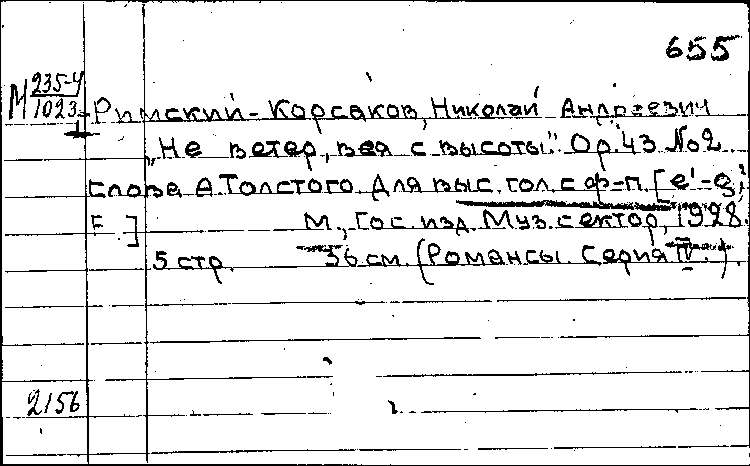 655
М 235-4
1023 Римский-Корсаков, Николай Андреевич
„Не ветер, вея с высоты." Op. 43 №2.
слова А.Толстого. Для выс. гол. с ф-п. [e'-
F.] М., Гос. изд. Муз. сектор, 1928.
5 стр. 36 см. (Романсы. Серия IV.).
2156